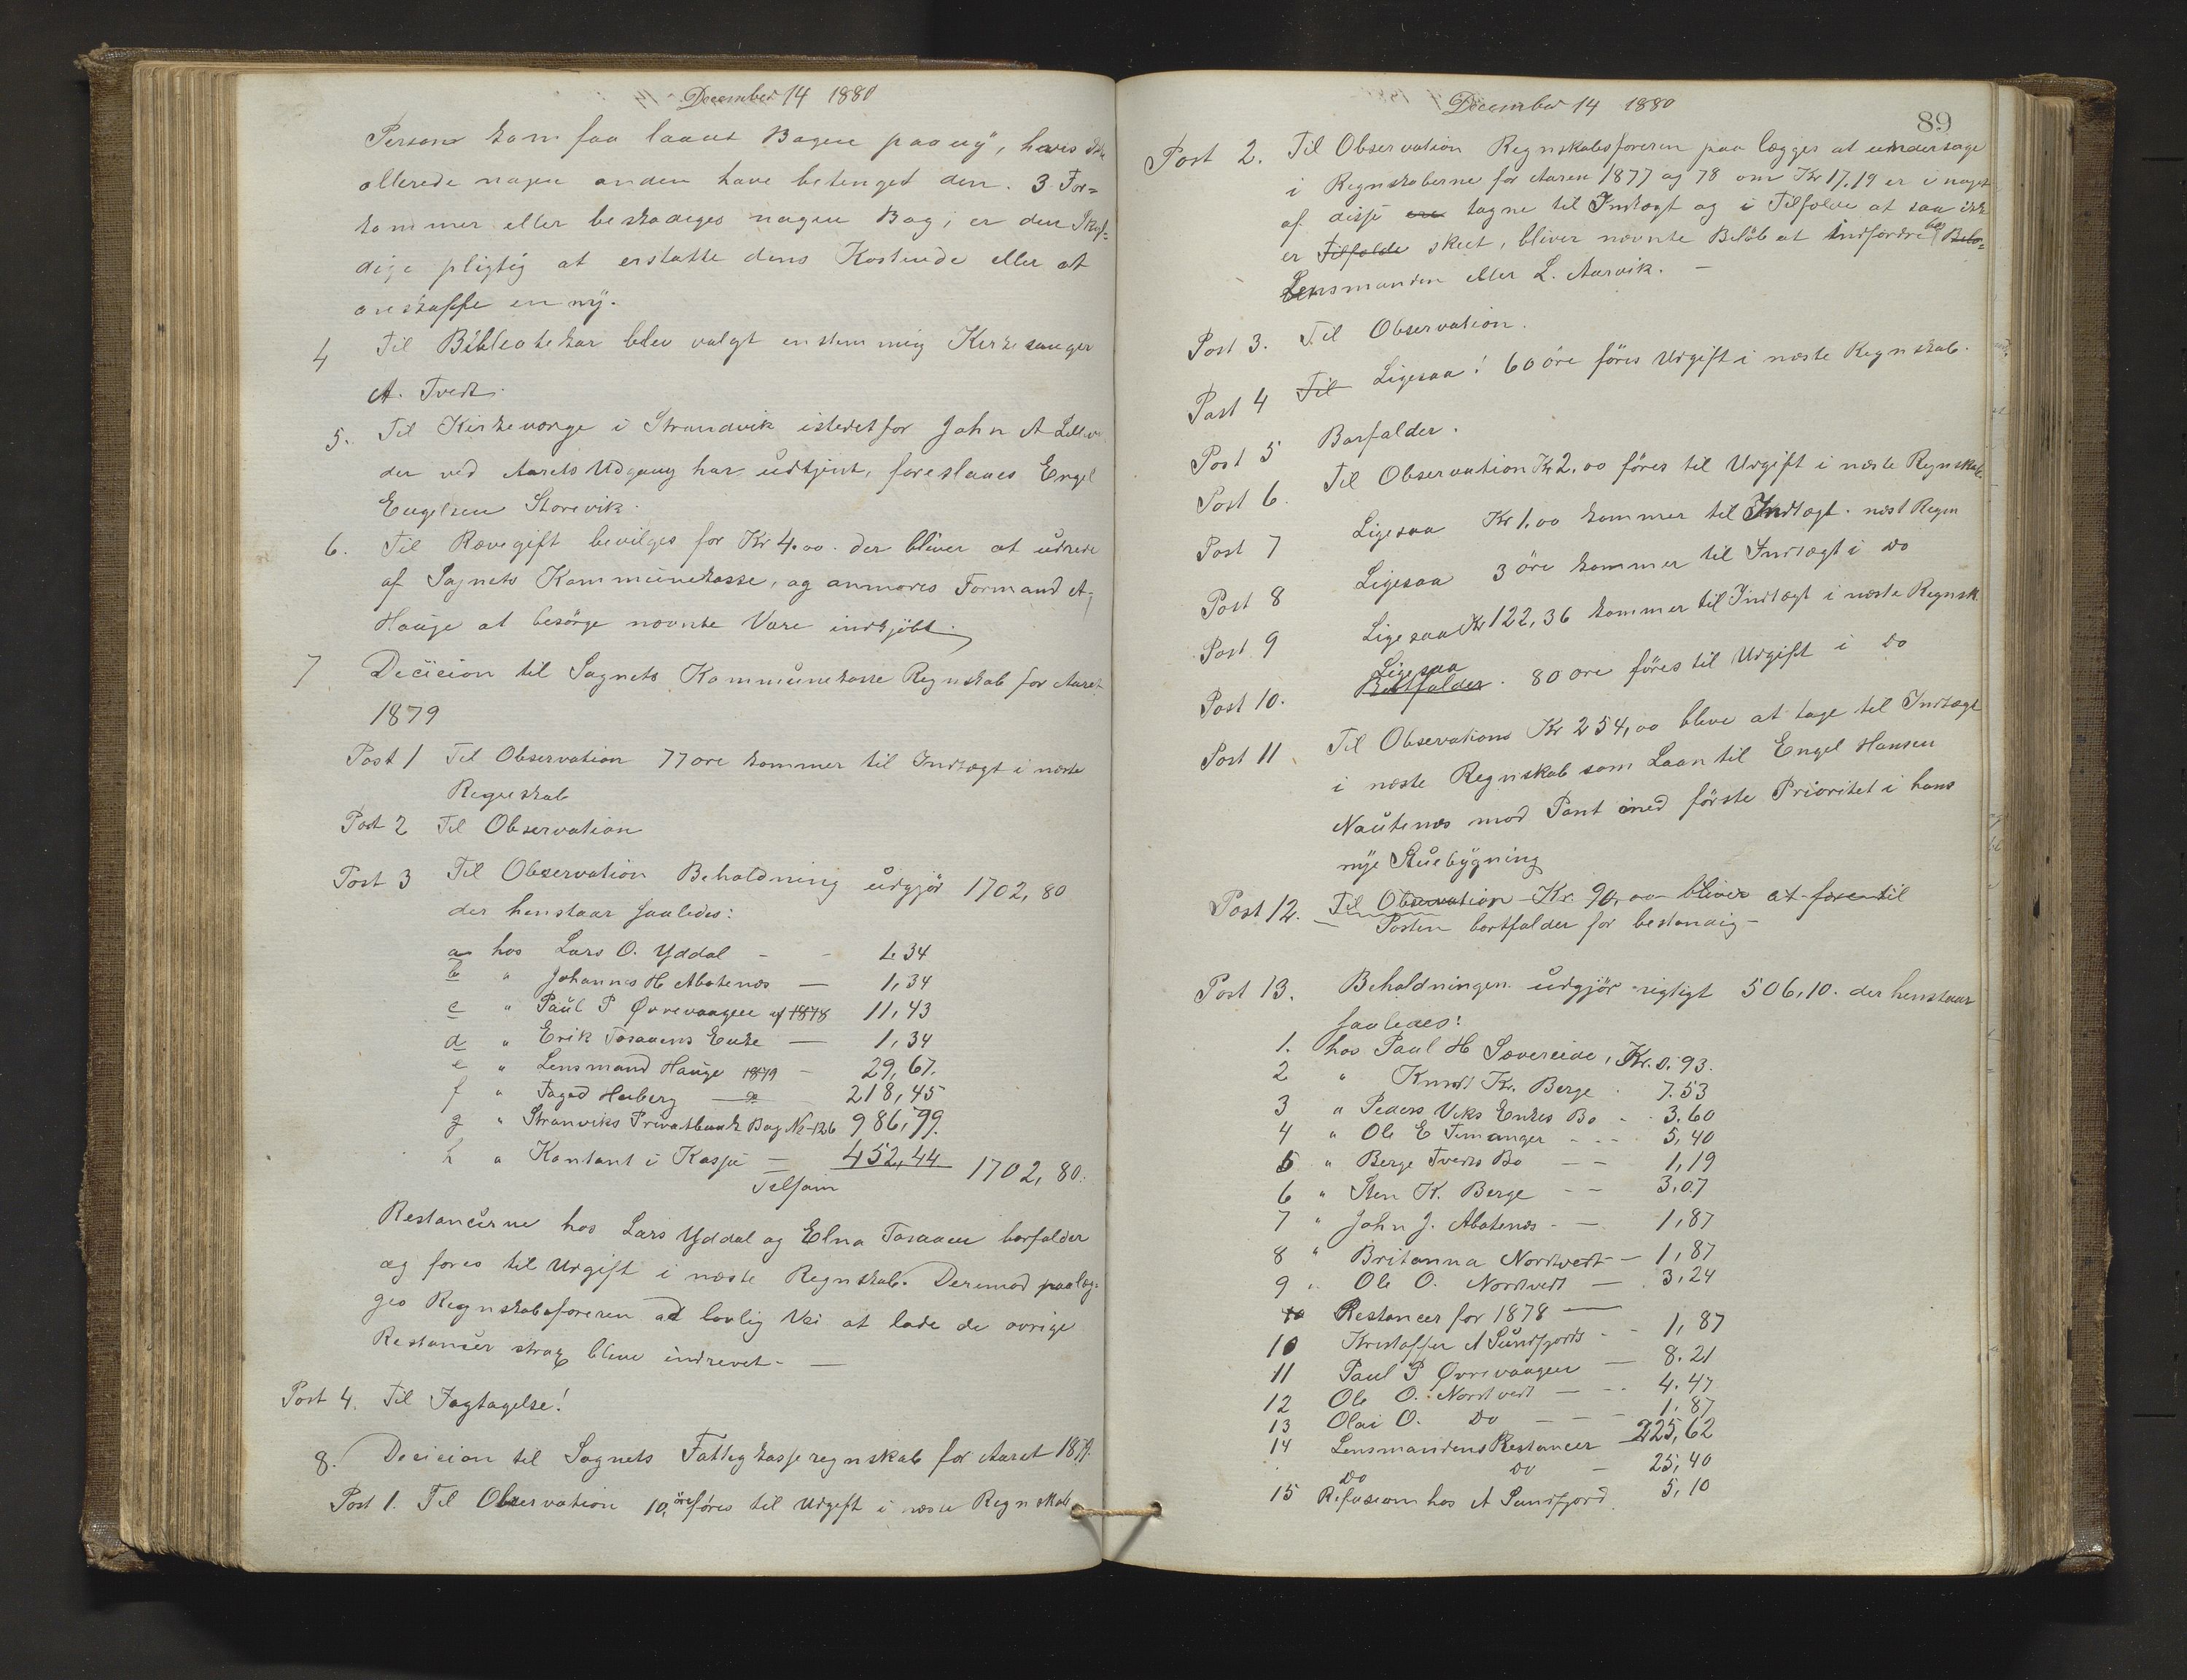 December 14 1880
Person kom faa laant Bogen paa ny, hvis ikke
allerede nogen anden have betinget den. 3. For=
kommer eller beskadiges nogen Bog, er den Skyl=
dige pligtig at erstatte dens Kostende eller at
anskaffe en ny.
4 Til Bibliotekar blev valgt enstemmig Kirkesanger
A. Tvedt.
5. Til Kirkeværge i Strandvik istedetfor John A
der ved Aarets Udgang har udtjent, foreslaaes Engel
Engelsen Storevik.
6. Til Rævegift bevilges for Kr 4.00. der bliver at udrede
af Sognets Kommunekasse, og anmodes Formand A.
Hauge at besörge nævnte Vare indkjöbt.
7 Decision til Sognets Kommunekasse Regnskab for Aaret
1879
Post 1 Til Observation 77 ore kommer til Indtægt i næste
Regnskab
Post 2 Til Observation
Post 3 Til Observation Beholdning udgjör 1702,80
der henstaar saaledes:
a hos Lars O. Yddal - - 1.34
b " Johannes H Abotenæs — 1,34
c " Paul P Øvrevaagen af 1878 11,43
d " Erik Tosaaens Enke — 1,34
e " Lensmand Hauge 1879 - 29,67.
f " Foged Heiberg — " 218,45
g " Stranviks Privatbank Bog No 126 986,79.
h " Kontant i Kasse — 452,44
Tilsam 1702,80.
Restancerne hos Lars Yddal og Elna Tosaaen borfalder
og fores til Udgift i næste Regnskab. Derimod paalæg=
ges Regnskabsforeren ad lovlig Vei at lade de ovrige
Restancer strax blive indrevet. —
Post 4. Til Iagtagelse!
8. Decision til Sognets Fattigkasseregnskab for Aaret 1879.
Post 1. Til Observation 10, öre föres til Udgift i næste Regnskab
December 14 1880
89
Post 2. Til Observation Regnskabsforeren paa lægges at undersöge
i Regnskaberne for Aaren 1877 og 78 om Kr 17.19 er i noget
af disse ere tagne til Indtægt og i Tilfælde at saa ikke
er Tilfælde skeet, bliver nævnte Belöb at indfordre hos Belö=
Lensmanden eller L. Aarvik. —
Post 3. Til Observation.
Post 4 Til Ligesaa! 60 öre föres Udgift i næste Regnskab.
Post 5 Borfalder.
Post 6. Til Observation Kr 2.00 föres til Udgift i næste Regnskab.
Post 7 Ligesaa Kr 1.00 kommer til Indtægt. næst Regn
Post 8 Ligesaa 3 öre kommer til Indtægt i do
Post 9 Ligesaa Kr 122,36 kommer til Indtægt i næste Regnsk.
Post 10. Ligesaa Bortfalder. 80 ore föres til Udgift i do
Post 11 Til Observation Kr 254,00 blive at tage til Indtægt
i næste Regnskab som Laan til Engel Hansen
Nautenæs mod Pant med förste Prioritet i hans
nye Stuebygning
Post 12. Til Observation Kr. 90,00 bliver at fores til
Posten bortfalder for bestandig —
Post 13. Beholdningen udgjör rigtigt 506,10. der henstaar
saaledes:
1. hos Paul H Sævereide, Kr. 0.93.
2 " Knudt Kr. Berge . 7.53
3 " Peders Viks Enkes Bo - - 3.60
4 " Ole E Timanger - - - 5,40
5 " Berge Tvedts Bo - - 1,19
6 " Sten K. Berge - - 3.07
7 " John J. Abotenæs - — 1,87
8 " Britanna Nordtvedt - — 1,87
9 " Ole O. Nordtvedt — . 3,24
10 Restancer for 1878 —
10 Kristoffer A Sundfjords - - 1,87
11 Paul P Øvrevaagen — 8.21
12 Ole O. Nordtvedt — - - 4.47
13 Olai O. Do — - - 1.87
14 Lensmandens Restancer 225,62
Do Do — 25,40
15 Refusion hos A Sundfjord. 5,10